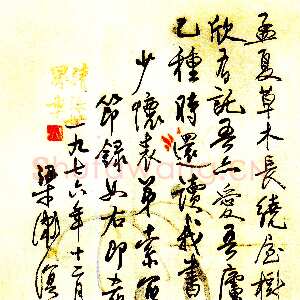 孟夏草木長繞屋樹
欣有託吾亦愛吾廬
已種時還讀我書
少懷表弟索
節録如右即
一九七六年十二月
梁漱溟